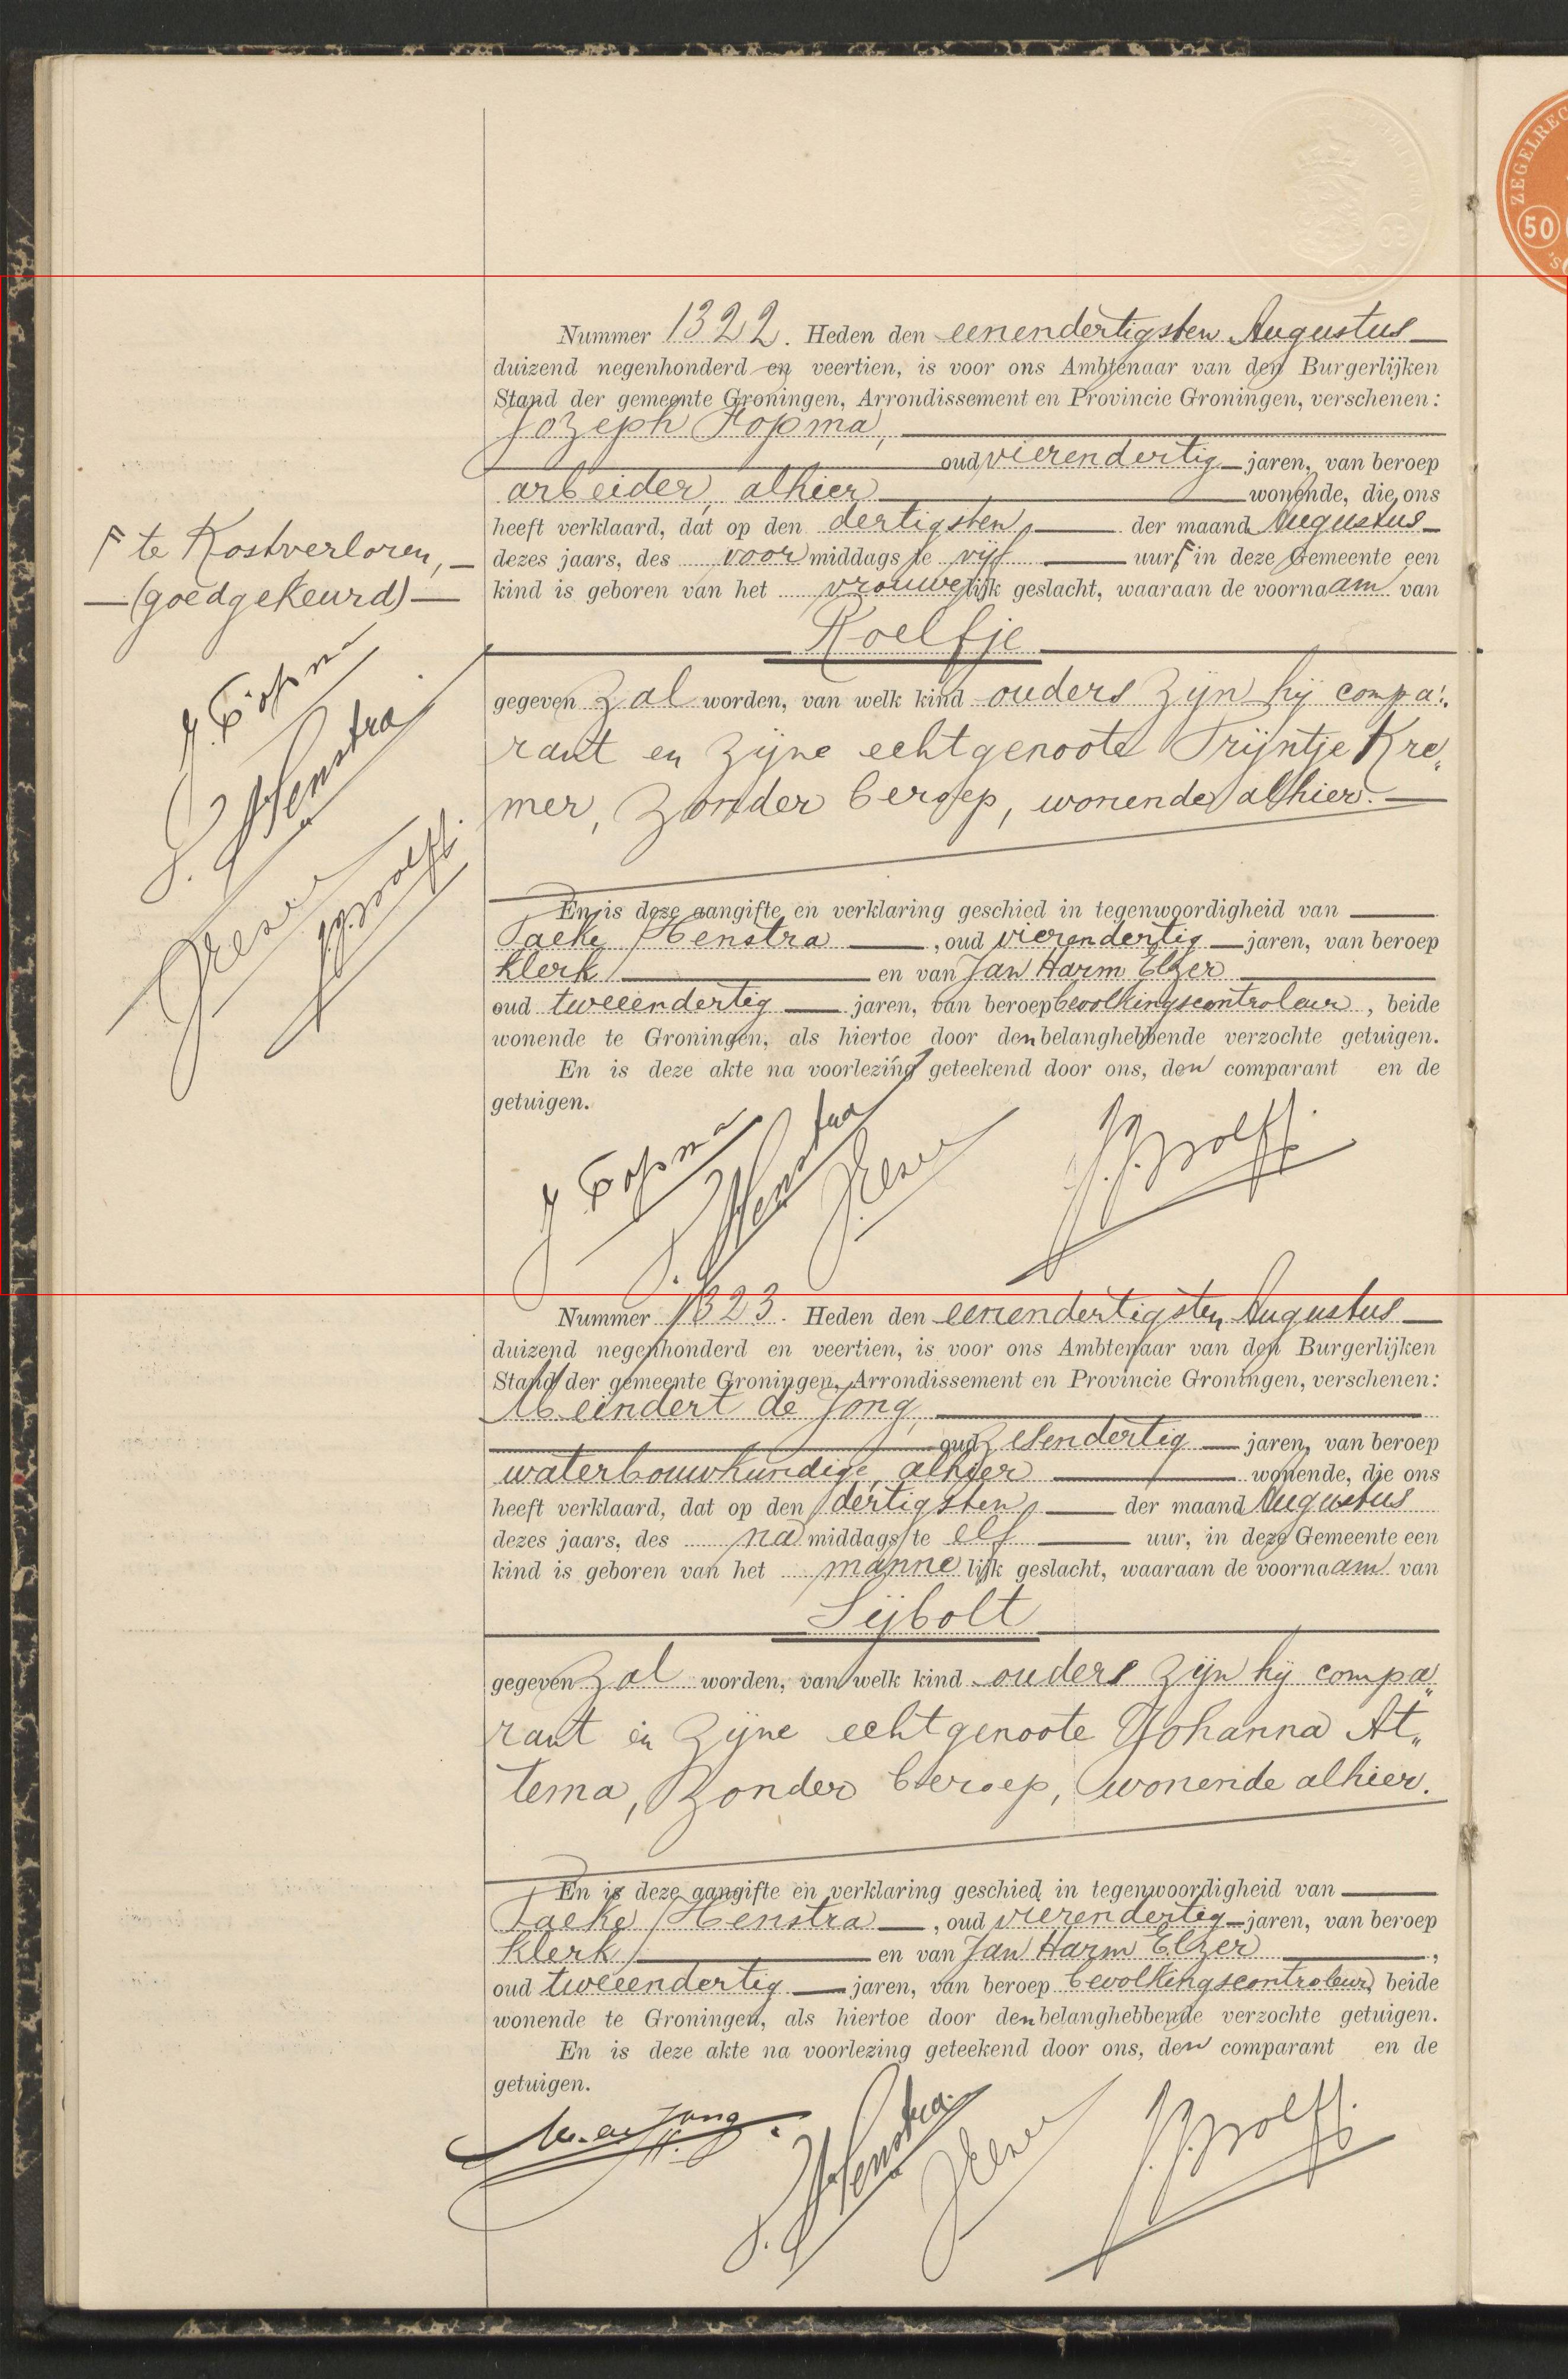 ZEGELREC
50
Nummer 1322. Heden den eenendertigsten Augustus
duizend negenhonderd en veertien, is voor ons Ambtenaar van den Burgerlijken
Stand der gemeente Groningen, Arrondissement en Provincie Groningen, verschenen:
Jozeph Fopma,
oud vierendertig jaren, van beroep
arbeider, alhier wonende, die ons
heeft verklaard, dat op den dertigsten der maand Augustus
dezes jaars, des voormiddags te vijf uur, in deze Gemeente een
kind is geboren van het vrouwelijk geslacht, waaraan de voornaam van
Roelfje
gegeven zal worden, van welk kind ouders zijn hij compa„
rant en zijne echtgenoote Trijntje Kre„
mer, zonder beroep, wonende alhier.
En is deze aangifte en verklaring geschied in tegenwoordigheid van
Taeke Henstra, oud vierendertig jaren, van beroep
klerk en van Jan Harm Elzer
oud tweeendertig jaren, van beroep bevolkingscontroleur, beide
wonende te Groningen, als hiertoe door den belanghebbende verzochte getuigen.
En is deze akte na voorlezing geteekend door ons, den comparant en de
getuigen.
J Fopma
T. Henstra
JHElzer
te Kostverloren,
(goedgekeurd)
J. Fopma
T. Henstra
Nummer 1323. Heden den eenendertigsten Augustus
duizend negenhonderd en veertien, is voor ons Ambtenaar van den Burgerlijken
Stand der gemeente Groningen, Arrondissement en Provincie Groningen, verschenen:
Meindert de Jong,
oud zesendertig jaren, van beroep
waterbouwkundige, alhier wonende, die ons
heeft verklaard, dat op den dertigsten der maand Augustus
dezes jaars, des namiddags te elf uur, in deze Gemeente een
kind is geboren van het mannelijk geslacht, waaraan de voornaam van
Sijbolt
gegeven zal worden, van welk kind ouders zijn hij compa„
rant en zijne echtgenoote Johanna At„
tema, zonder beroep, wonende alhier.
En is deze aangifte en verklaring geschied in tegenwoordigheid van
Taeke Henstra, oud vierendertig jaren, van beroep
klerk en van Jan Harm Elzer,
oud tweeendertig jaren, van beroep bevolkingscontroleur, beide
wonende te Groningen, als hiertoe door den belanghebbende verzochte getuigen.
En is deze akte na voorlezing geteekend door ons, den comparant en de
getuigen.
M. de Jong
T. Henstra
JHElzer